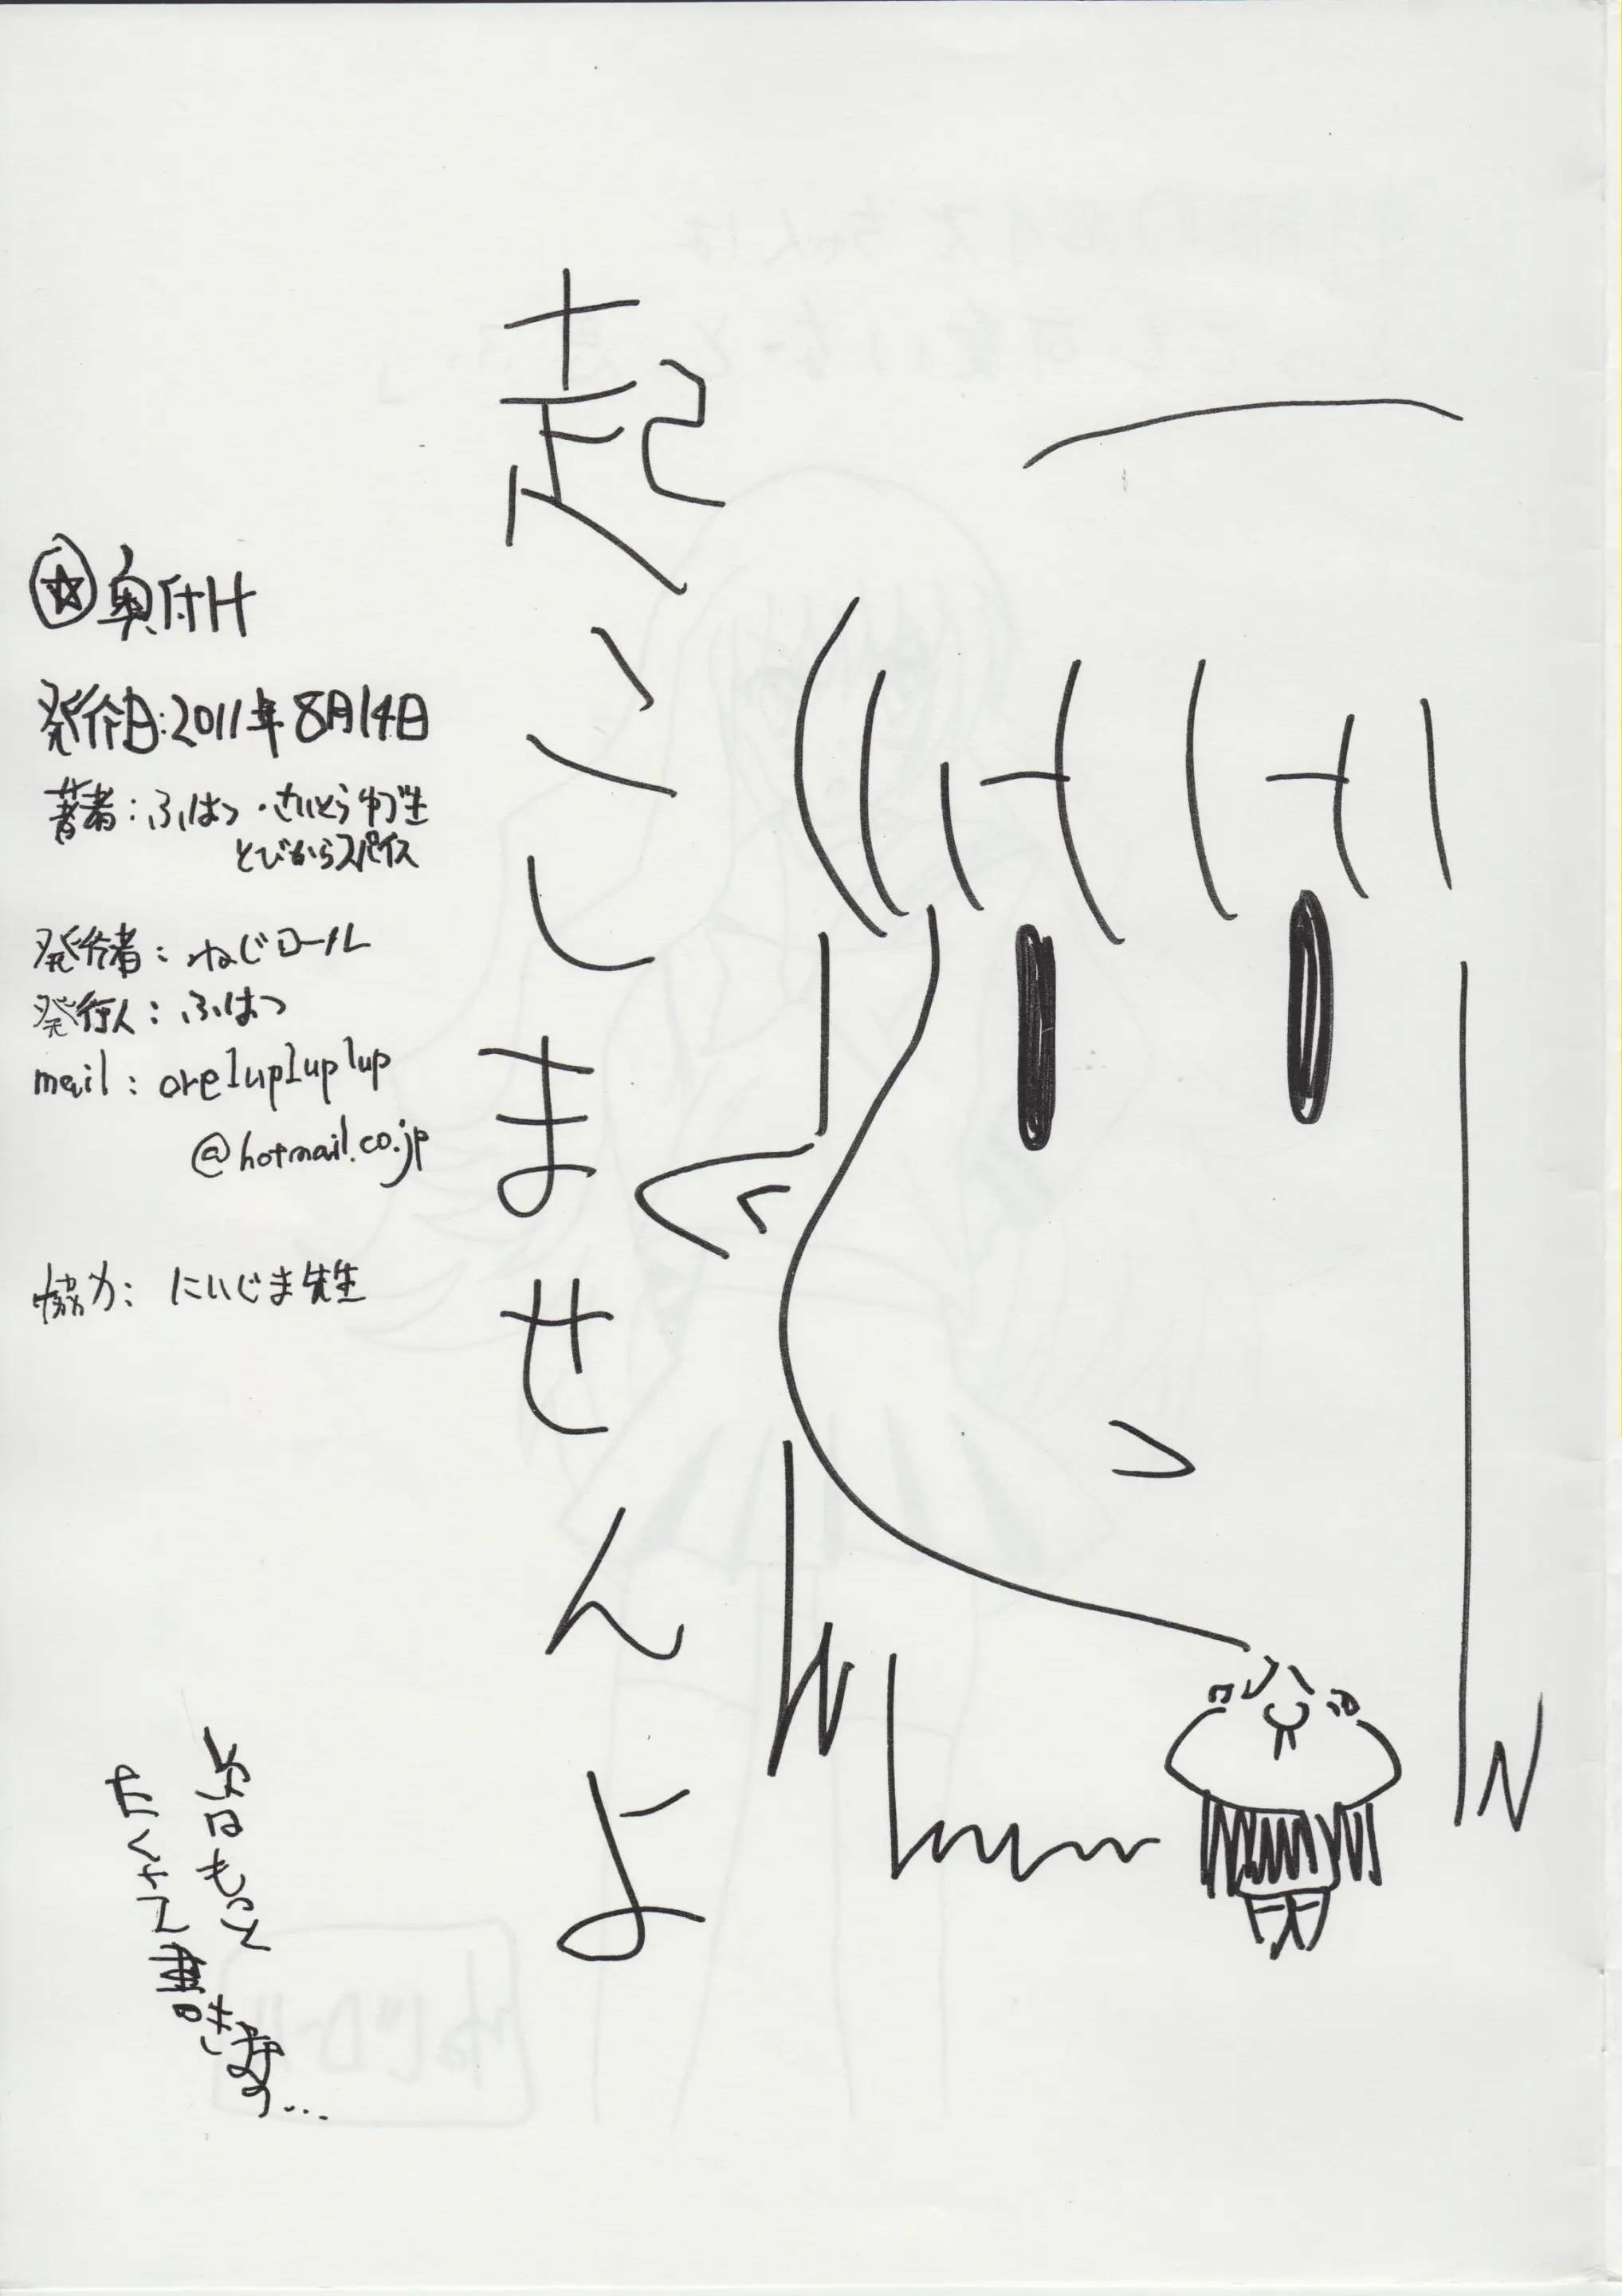 起こしませんよ
奥付け
発行日:2011年8月14日
著者:ふはつ・さいとうゆづ生
とびからスパイス
発行者:ねじロール
発行人:ふはつ
mail:ore1up1up1up
@hotmail.co.jp
協力:にいじま先生
次はもっと
たくさん書きます…
ねじロール